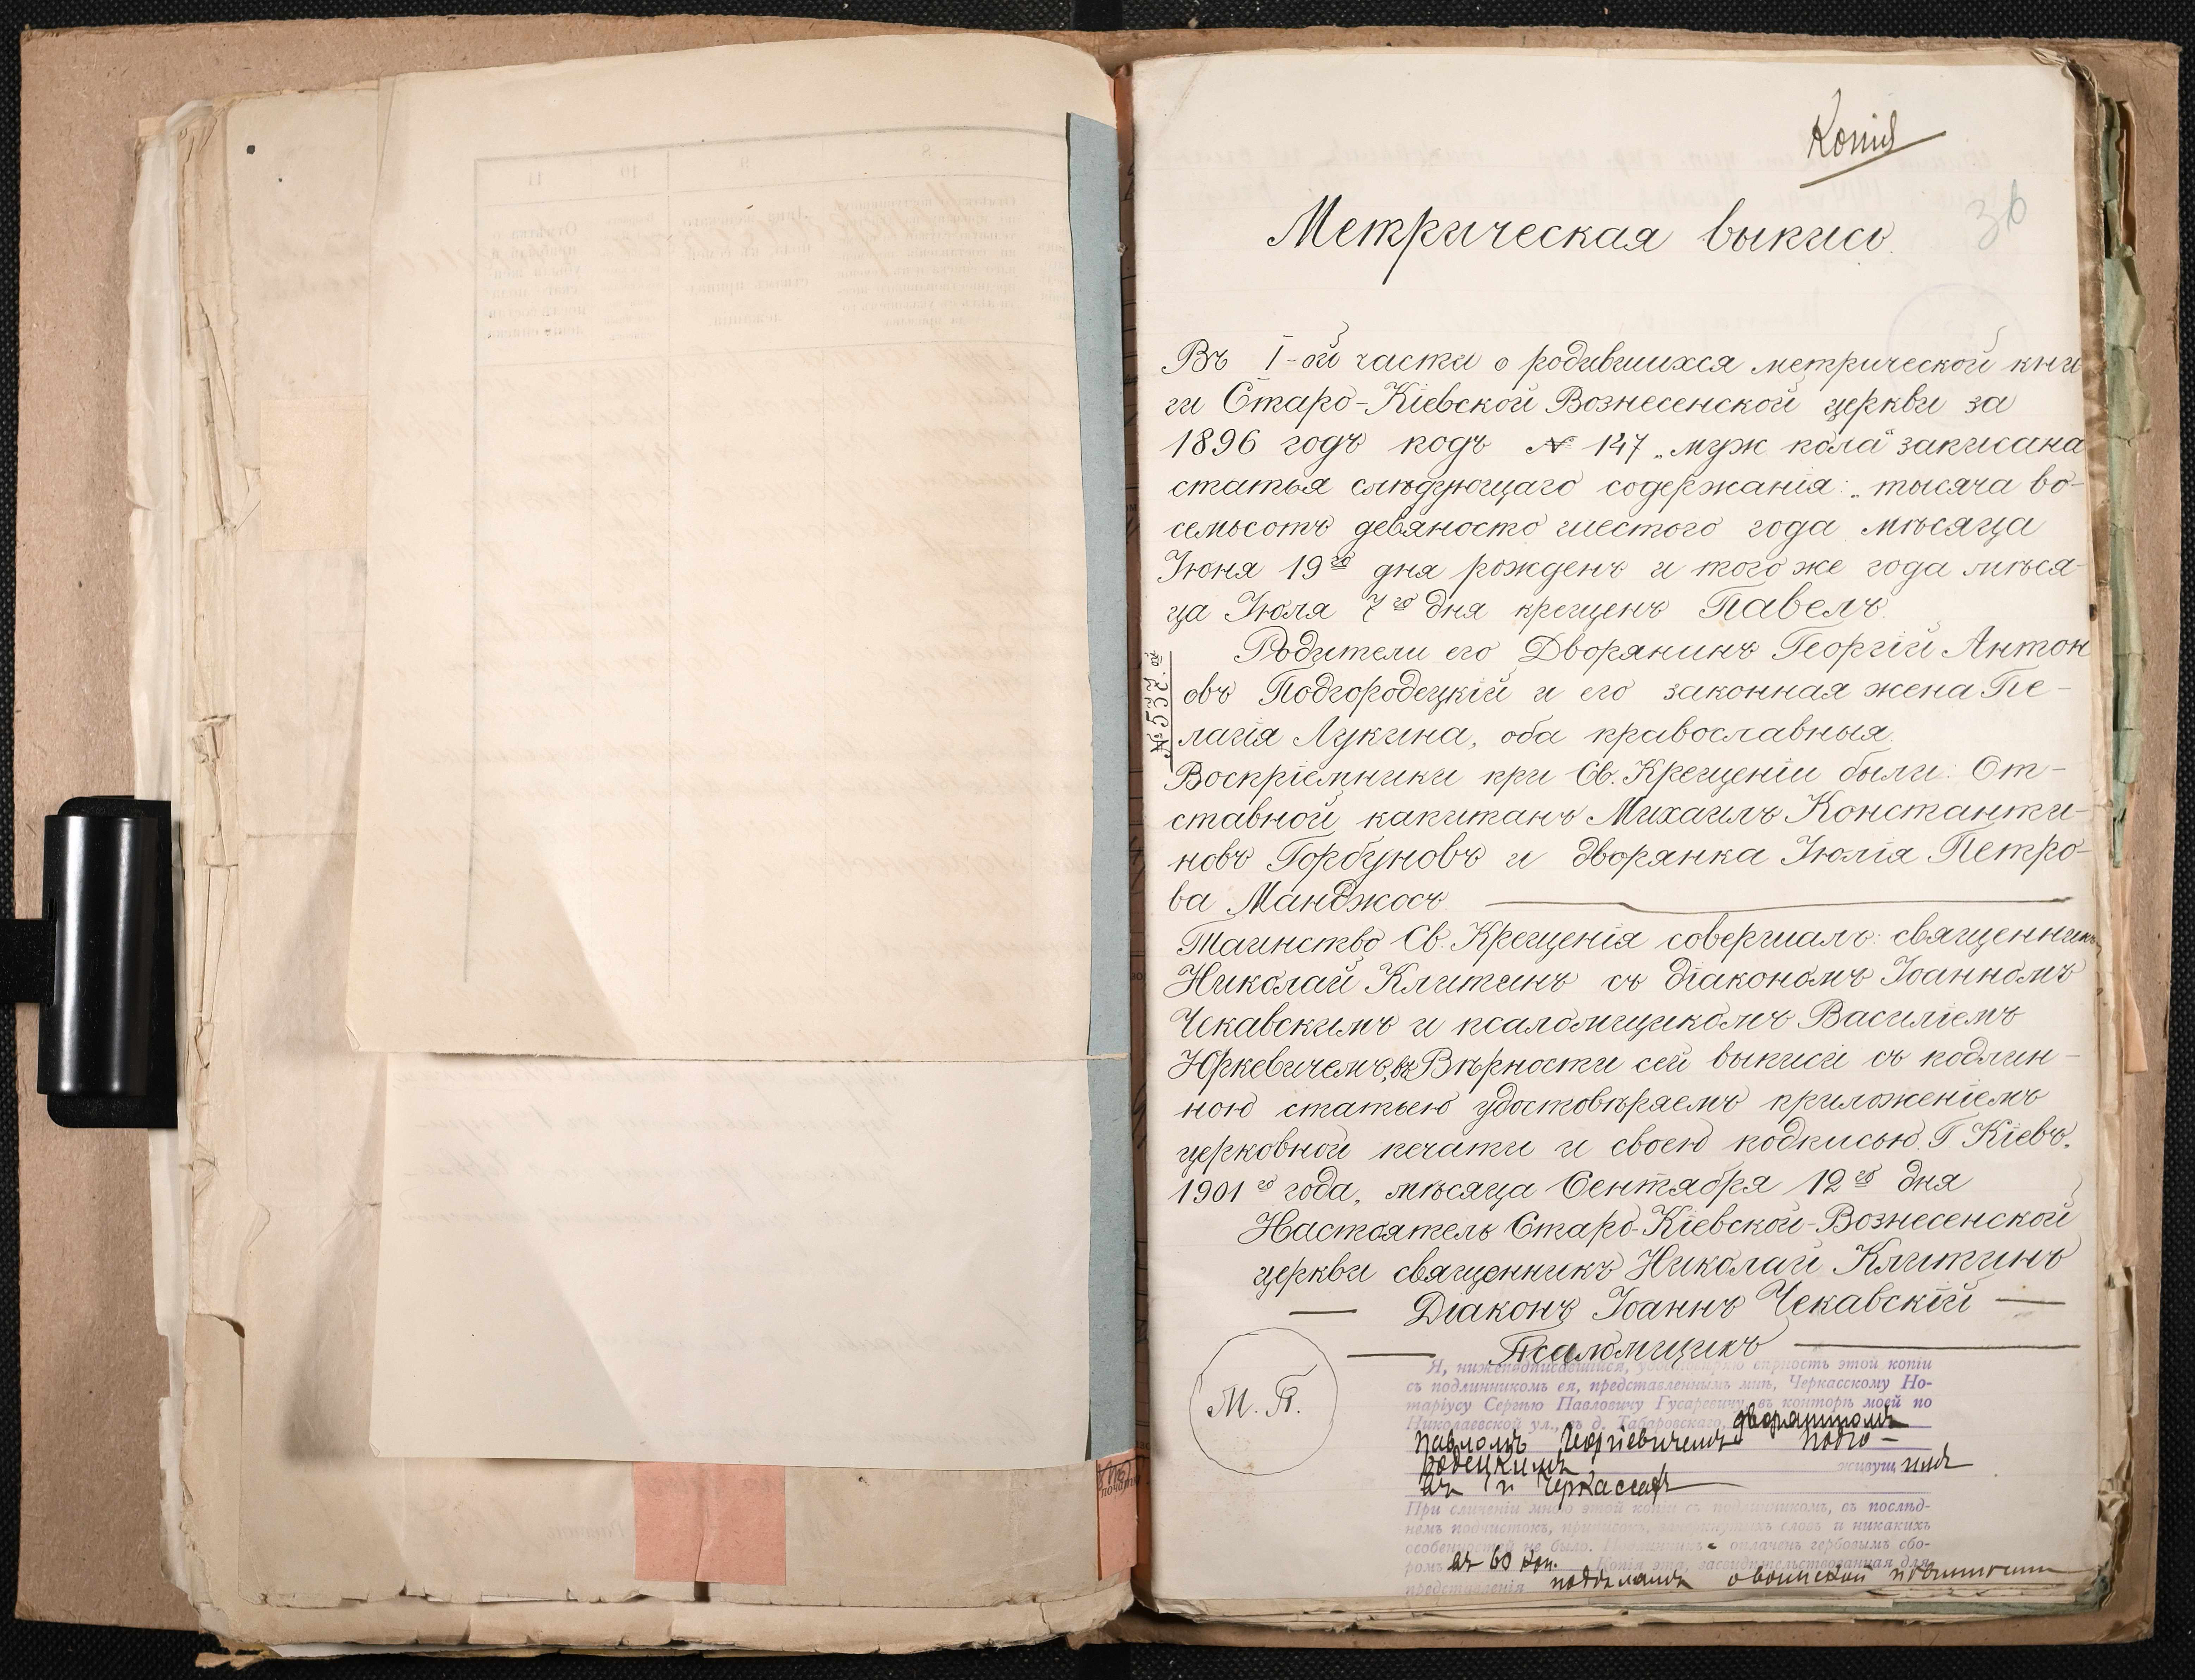 Копія
36
Метрическая выпись.
Въ I-ой части о родившихся метрической кни
ги Старо-Кіевской Вознесенской церкви за
1896 годъ подъ № 147 „муж пола“ записана
статья слѣдующаго содержанія: „тысяча во-
семьсотъ девяносто шестого года мѣсяца
Іюня 19го дня рожденъ и того же года мѣся-
ца Іюля 7го дня крещенъ Павелъ.
Родители его Дворянинъ Георгій Антон
овъ Подгородецкій и его законная жена Пе-
лагія Лукина, оба православныя.
Воспріемники при Св. Крещеніи были: От-
ставной капитанъ Михаилъ Константи-
новъ Горбуновъ и дворянка Юлія Петро-
ва Манджосъ
Таинство Св. Крещенія совершалъ: священникъ
Николай Клитинъ съ діакономъ Іоанномъ
Чекавскимъ и псаломщикомъ Василіемъ
Юркевичемъ, въ Вѣрности сей выписи съ подлин-
ною статьею удостовѣряемъ приложеніемъ
церковной печати и своею подписью. Г Кіевъ.
1901го года, мѣсяца Сентября 12го дня
Настоятель Старо-Кіевской-Вознесенской
церкви священникъ Николай Клитинъ
— Діаконъ Іоаннъ Чекавскій —
— Псаломщикъ —
М. П.
Я, нижеподписавшійся, удостовѣряю вѣрность этой копіи
съ подлинникомъ ея, представленнымъ мнѣ, Черкасскому Но-
таріусу Сергѣю Павловичу Гусаревичу, въ конторѣ моей по
Николаевской ул., въ д. Табаровскаго, дворяниномъ
Павломъ Георгіевичемъ Подго-
родецкимъ живущимъ
въ г. Черкассахъ
При сличеніи мною этой копіи съ подлинникомъ, въ послѣд-
немъ подчистокъ, приписокъ, зачеркнутыхъ словъ и никакихъ
особенностей не было. Подлинникъ оплаченъ гербовымъ сбо-
ромъ въ 60 коп. Копія эта, засвидѣтельствованная для
представленія по дѣламъ о воинской повинности